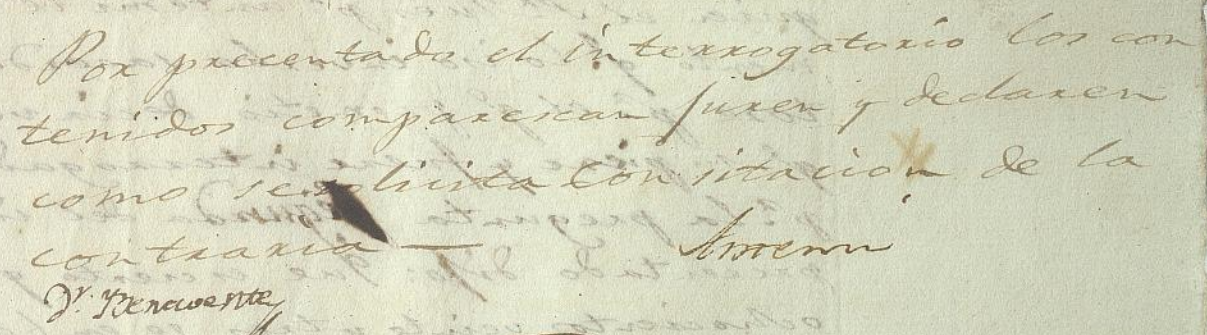 Por precentado el interrogatorio los con
tenidos comparescan juren y declaren
como se solicita Con sitacion de la
contraria —
Dr. Benavente